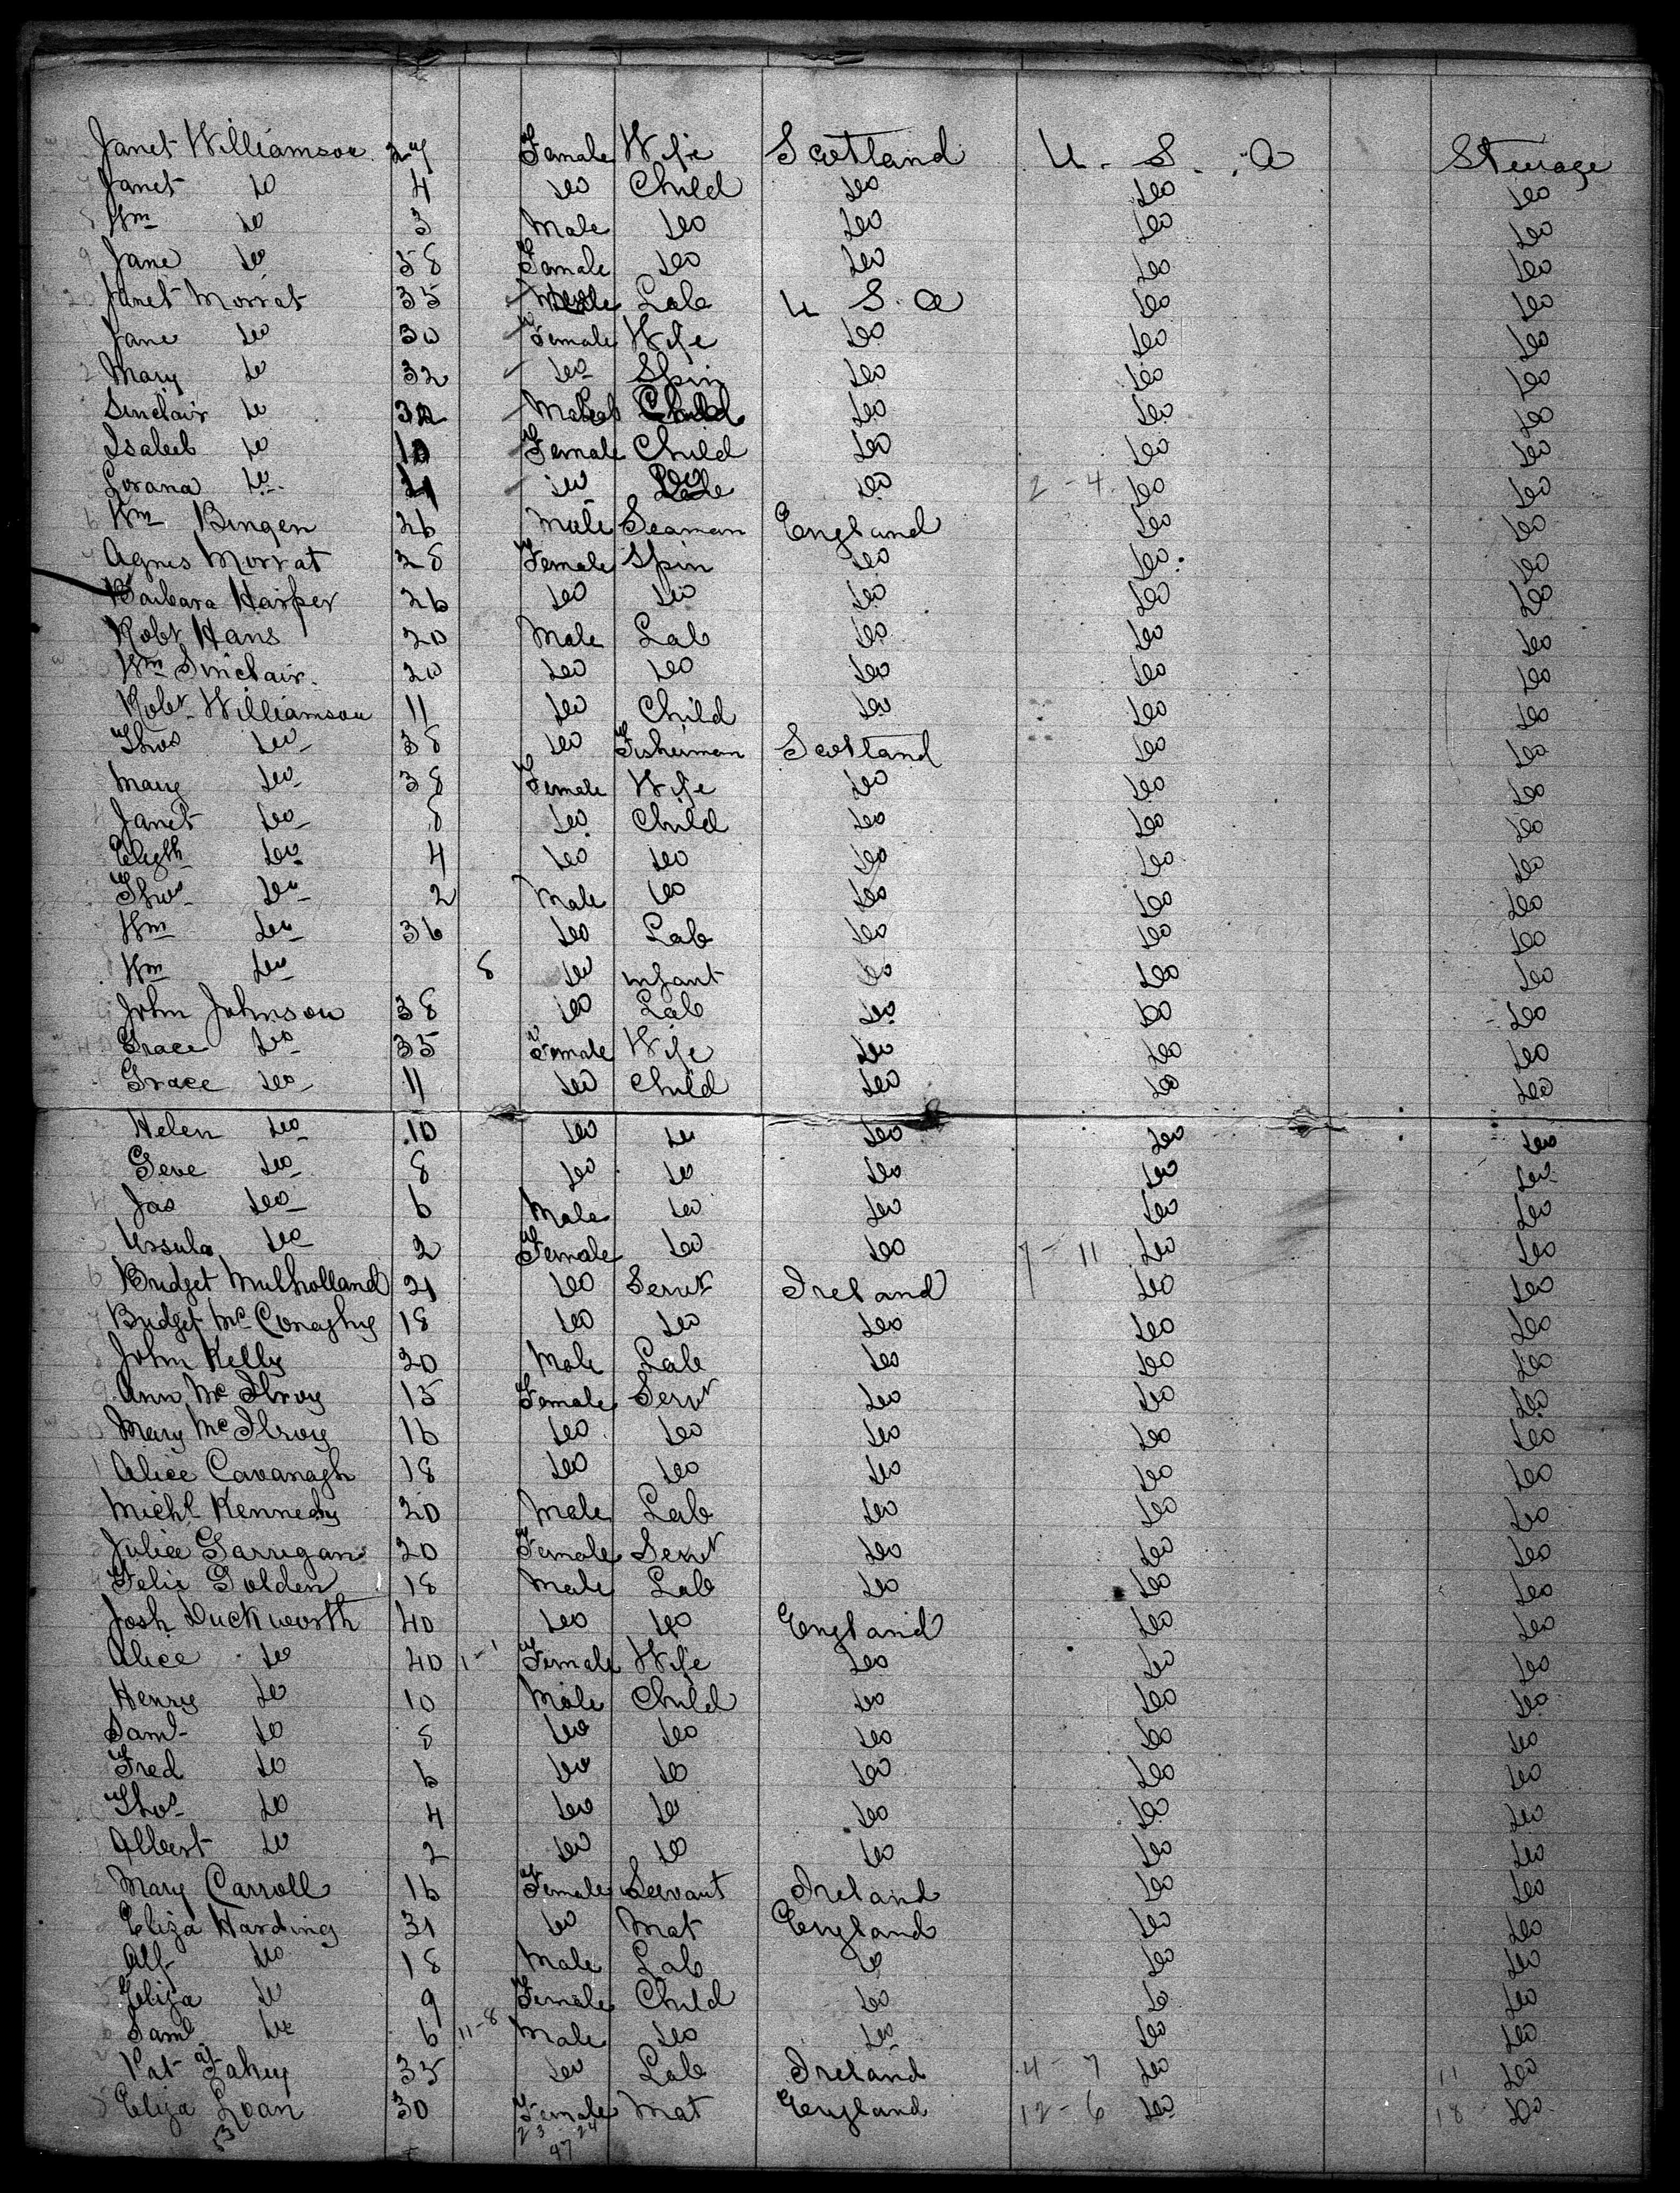 Janet Williamson 29 Female Wife Scotland U. S. A Steerage
Janet Do 4 Do Child Do Do Do
Wm Do 3 Male Do Do Do Do
Jane Do 58 Female Do Do Do Do
Janet Mowat 35 Male Lab U S. A Do Do
Jane Do 30 Female Wife Do Do Do
Mary Do 32 Do Spin Do Do Do
Sinclair Do Do Do Do
Isabeb Do 10 Female Child Do Do Do
Do Do Do 2-4 Do Do
Wm Bingen 26 Male Seaman England Do Do
Agnes Mowat 28 Female Spin Do Do Do
Barbara Harper 26 Do Do Do Do Do
Robt Hans 20 Male Lab Do Do Do
Wm Sinclair 20 Do Do Do Do Do
Robt Williamson 11 Do Child Do Do Do
Thos Do 38 Do Fisherman Scotland Do Do
Mary Do 38 Female Wife Do Do Do
Janet Do 8 Do Child Do Do Do
Elizth Do 4 Do Do Do Do Do
Thos Do 2 Male Do Do Do Do
Wm Do 36 Do Lab Do Do Do
Wm Do 8 Do Infant Do Do Do
John Johnson 38 Do Lab Do Do Do
Grace Do 35 Female Wife Do Do Do
Grace Do 11 Do Child Do Do Do
Helen Do 10 Do Do Do Do Do
Geve Do 8 Do Do Do Do Do
Jas Do 6 Male Do Do Do Do
Ursula Do 2 Female Do Do 7-11 Do Do
Bridget Mulholland 21 Do Servt Ireland Do Do
Bridget McConaghy 18 Do Do Do Do Do
John Kelly 20 Male Lab Do Do Do
Ann McIlroy 15 Female Servt Do Do Do
Mary McIlroy 16 Do Do Do Do Do
Alice Cavanagh 18 Do Do Do Do Do
Michl Kennedy 20 Male Lab Do Do Do
Julia Garrigan 20 Female Servt Do Do Do
Felix Golden 18 Male Lab Do Do Do
Josh Duckworth 40 Do Do England Do Do
Alice Do 40 1-1 Female Wife Do Do Do
Henry Do 10 Male Child Do Do Do
Saml Do 8 Do Do Do Do Do
Fred Do 6 Do Do Do Do Do
Thos Do 4 Do Do Do Do Do
Albert Do 2 Do Do Do Do Do
Mary Carroll 16 Female Servant Ireland Do Do
Eliza Harding 31 Do Mat England Do Do
Alf Do 18 Male Lab Do Do Do
Eliza Do 9 Female Child Do Do Do
Saml Do 6 11-8 Male Do Do Do Do
Pat Fahey 35 Do Lab Ireland 4-7 Do 11 Do
Eliza Loan 30 Female Mat England 12-6 Do 18 Do
53 23 24
47